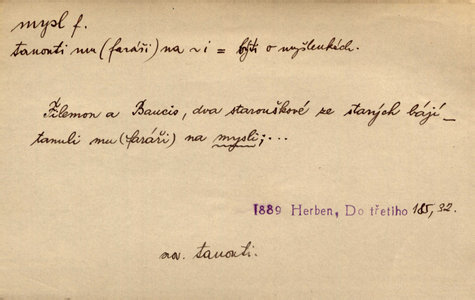 mysl f.
tanouti mu (faráři) na ~i = býti o myšlenkách.
Filemon a Baucis, dva starouškové ze starých bájí
tanuli mu (faráři) na mysli;...
1889 Herben, Do třetího 185, 32.
nov. tanouti.